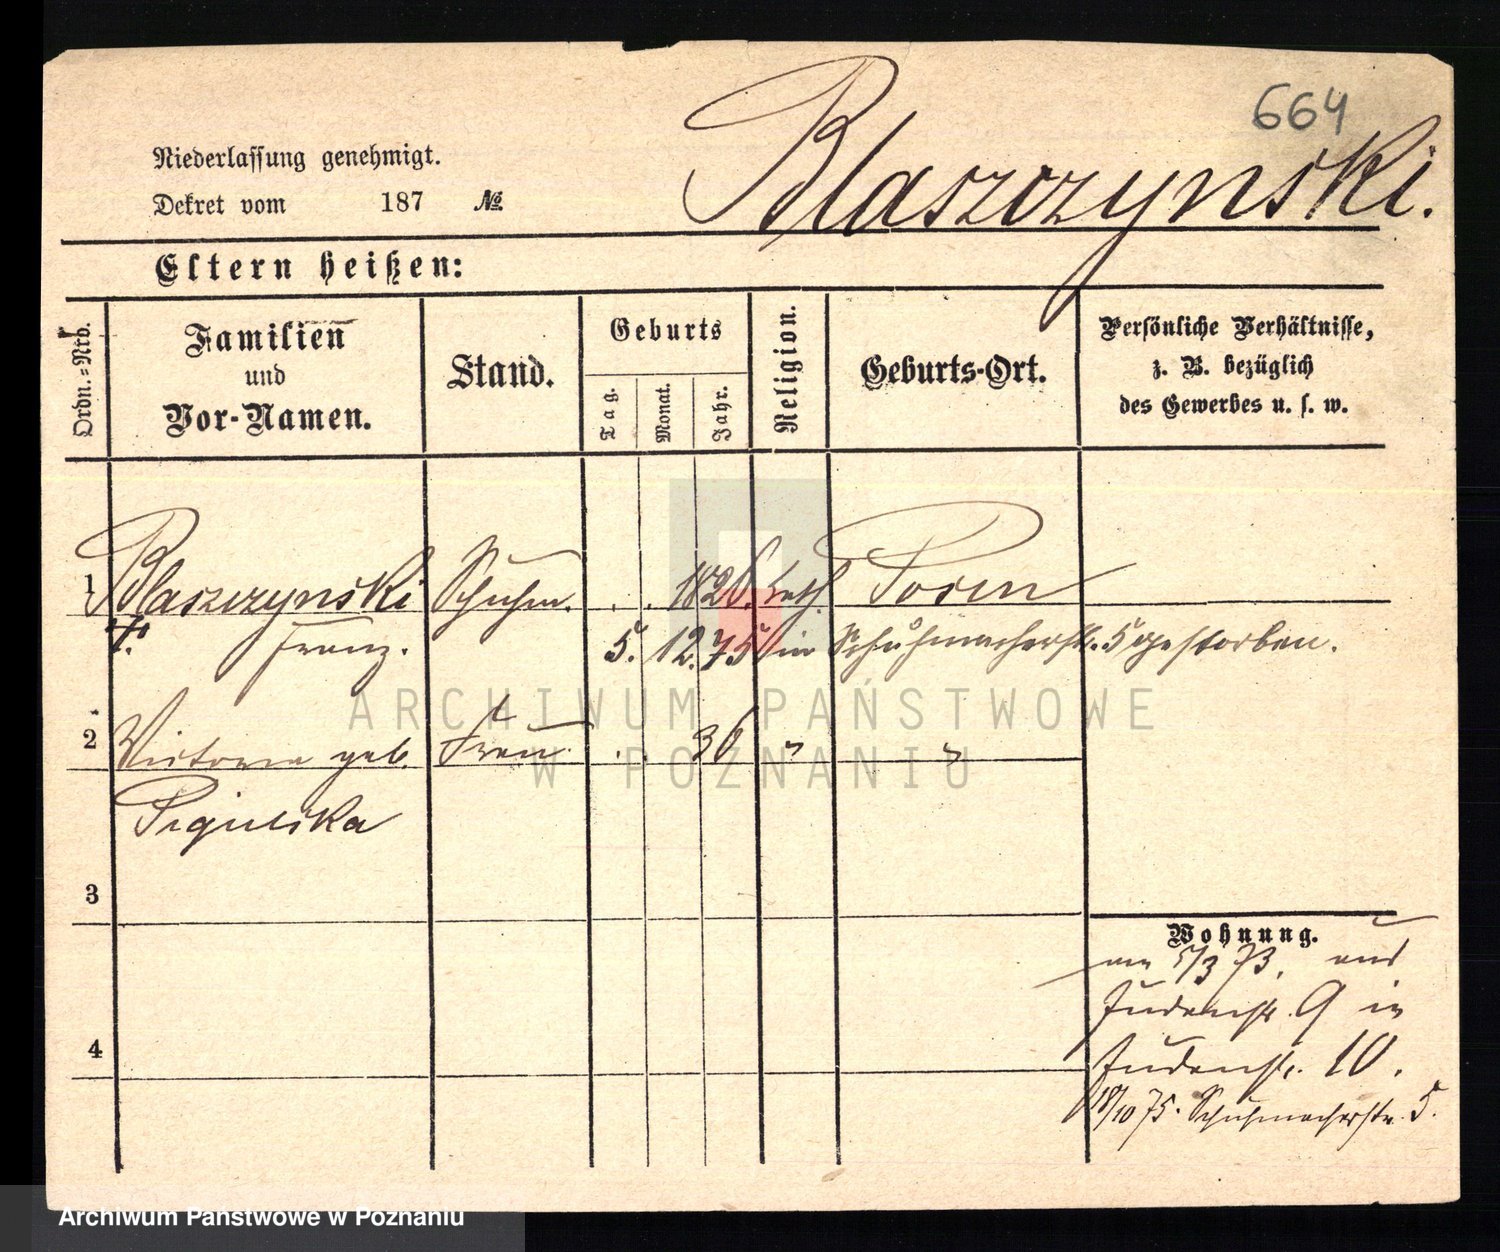 664
Blaszczynski.
Niederlassung genehmigt.
Dekret vom 187 №
Eltern heißen:
Ordn.=Nro.
Familien
und
Vor-Namen.
Stand.
Geburts
Tag.
Monat.
Jahr.
Religion.
Geburts-Ort.
Persönliche Verhältnisse,
z. B. bezüglich
des Gewerbes u. s. w.
1 Blaszczynski Schuhm. . . 1826. kath. Posen
†. Franz. 5. 12. 75 in Schuhmacherstr. 5 gestorben.
2 Victoria geb. Frau . . 36 " "
3
4
Wohnung.
am 5/3 73. aus
Judenstr. 9 in
Judenstr. 10.
18/10 75. Schuhmacherstr. 5.
ARCHIWUM PAŃSTWOWE
W POZNANIU
Archiwum Państwowe w Poznaniu